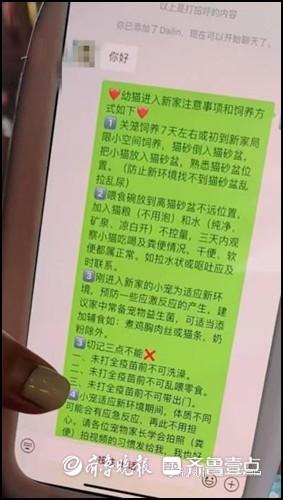 以上是打招呼的内容
你已添加了 Dailin，现在可以开始聊天了。
你好
❤️幼猫进入新家注意事项和饲养方
式如下❤️
1️⃣ 关笼饲养7天左右或初到新家局
限小空间饲养，猫砂倒入猫砂盆，
把小猫放入猫砂盆，熟悉猫砂盆位
置。（防止新环境找不到猫砂盆乱
拉乱尿）
2️⃣喂食碗放到离猫砂盆不远位置，
加入猫粮（不用泡）和水（纯净、
矿泉、凉白开）不控量，三天内观
察小猫吃喝及粪便情况，干便、软
便都属正常。如拉水状或呕吐应及
时联系。
3️⃣刚进入新家的小宠为适应新环
境，预防一些应激反应的产生，建
议家中常备宠物益生菌，可适当添
加辅食如：煮鸡胸肉丝或猫条，奶
粉除外。
3️⃣切记三点不能❌
一、未打全疫苗前不可洗澡。
二、未打全疫苗前不可乱喂零食。
三、未打全疫苗前不可带出门。
4️⃣小宠适应新环境期间，体质不同
可能会有应急反应，再此不用担
心。请各位宠物家长学会拍照（粪
便）拍视频的习惯发给我，我也好
齐鲁晚报
齐鲁壹点